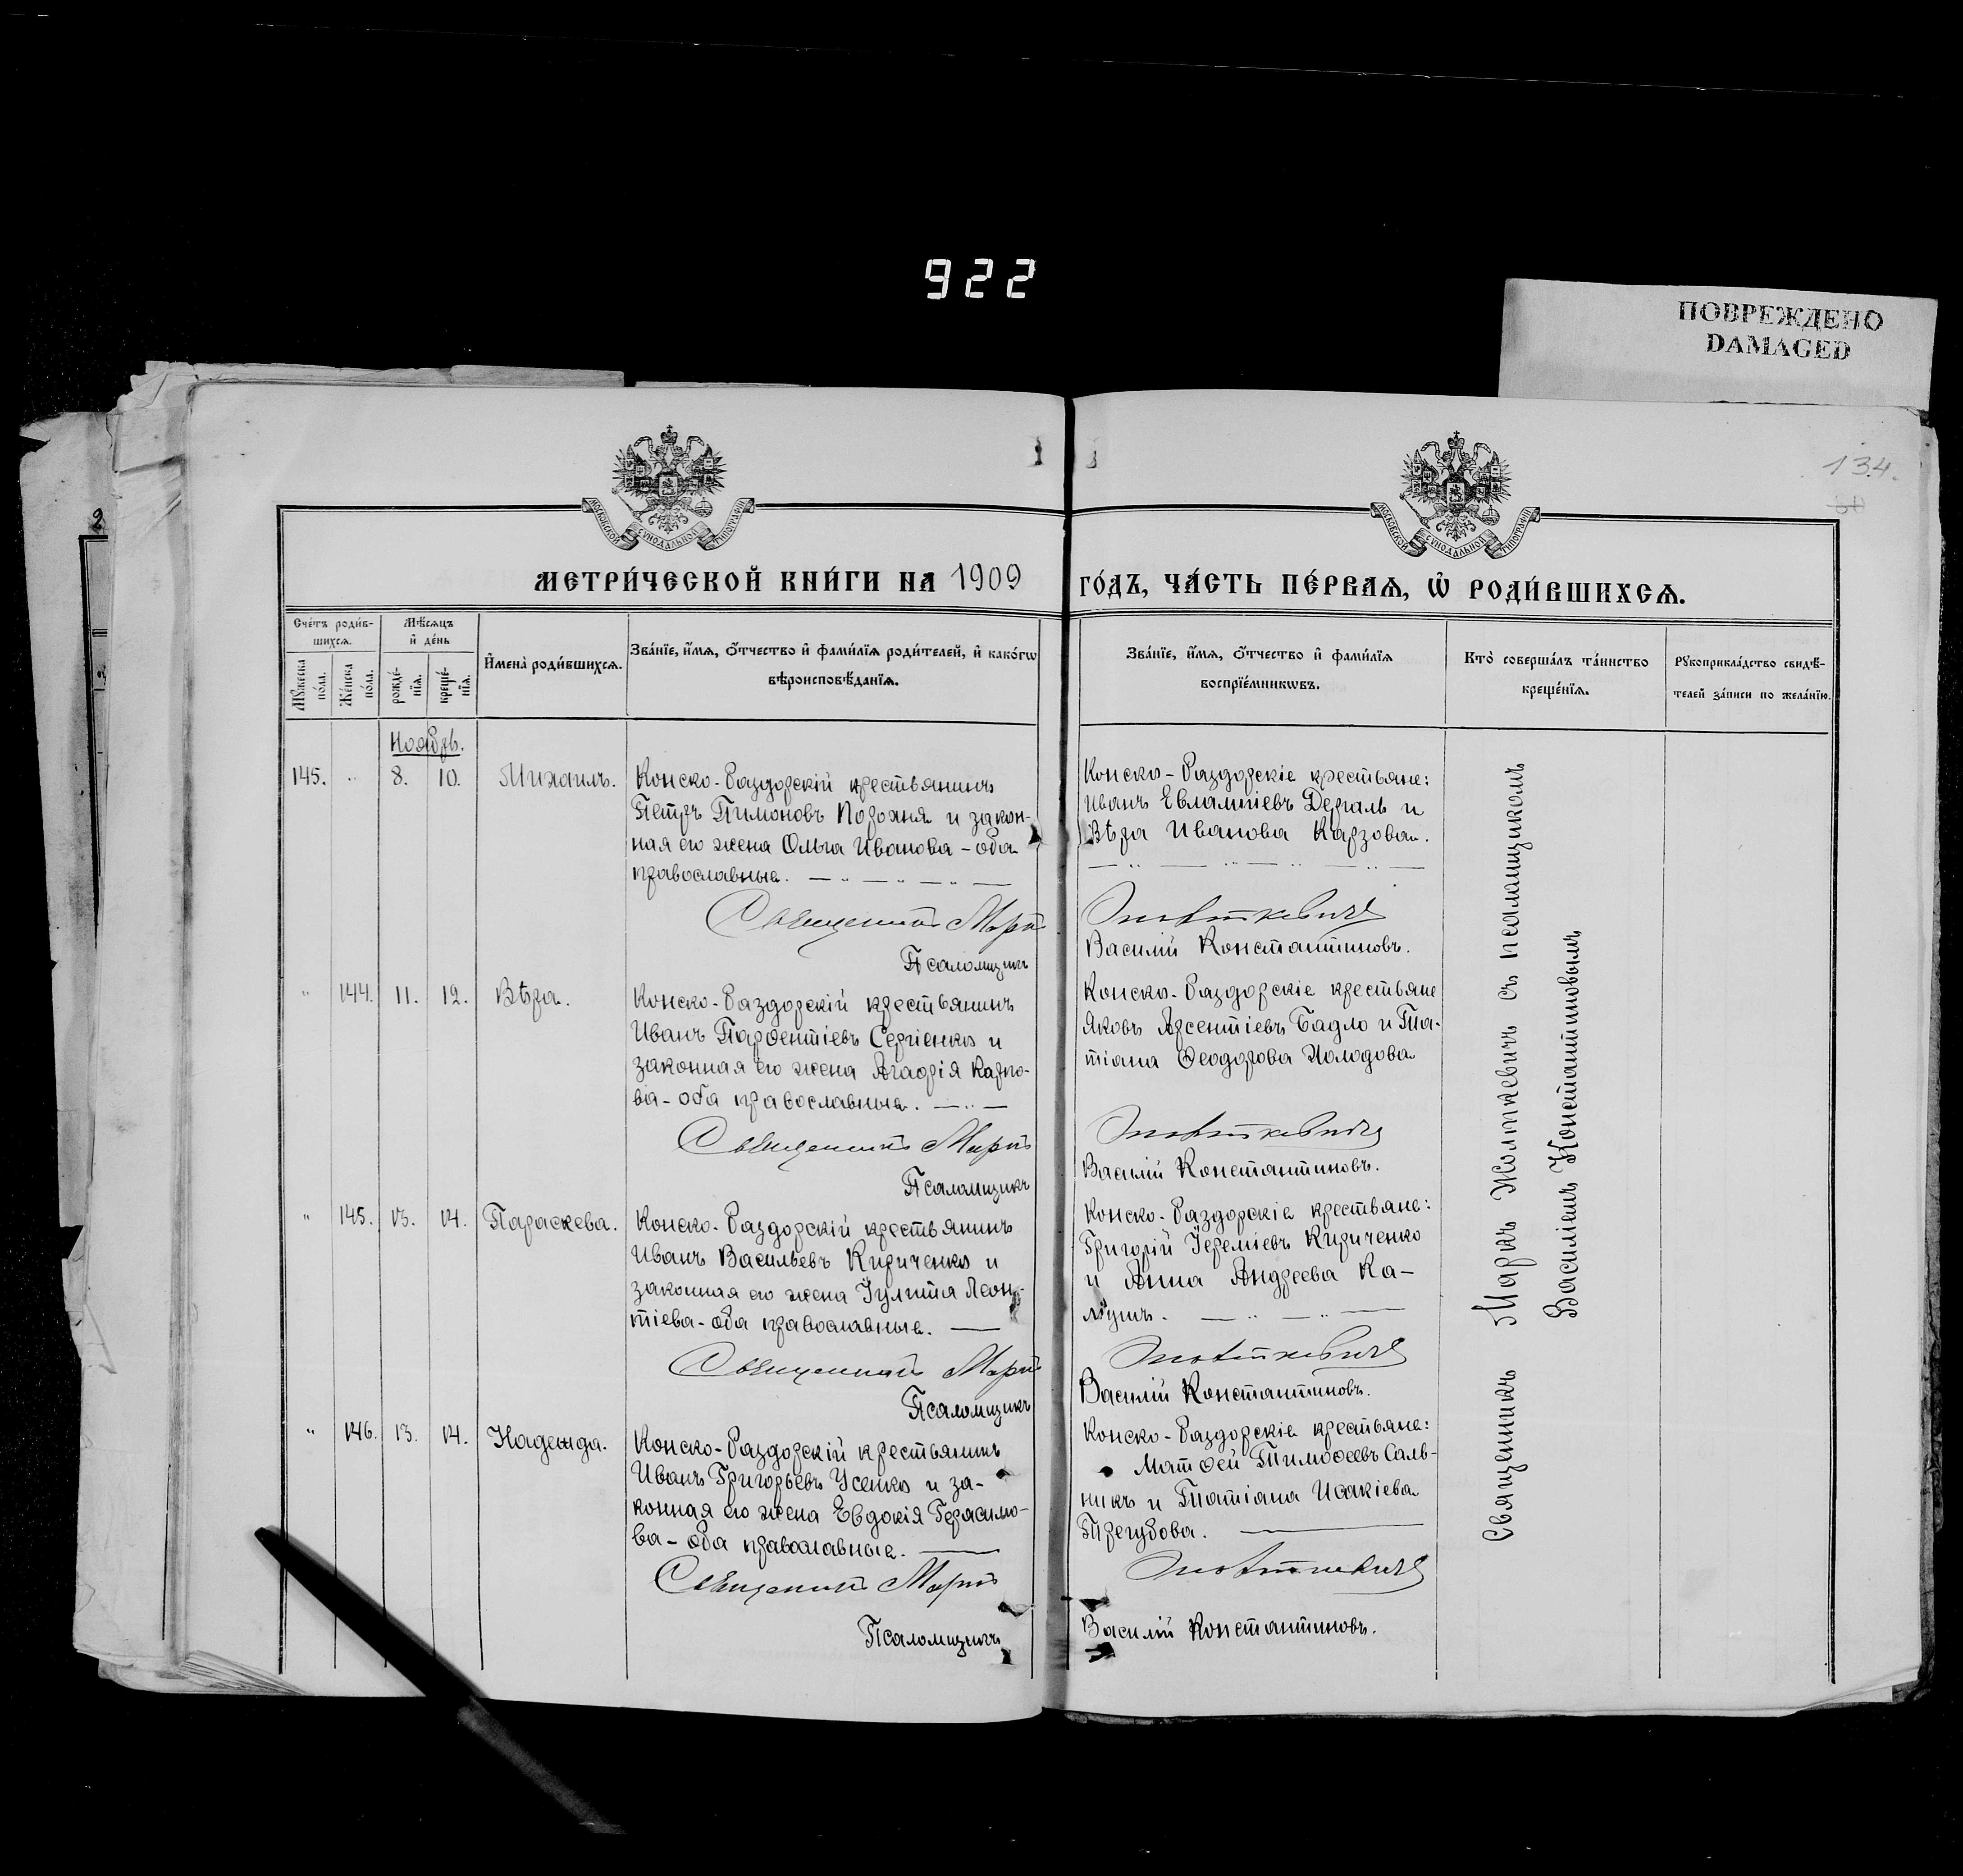 922
ПОВРЕЖДЕНО
DAMAGED
134.
МОСКОВСКОЙ СѴНОДАЛЬНОЙ ТИПОГРАФІИ
МОСКОВСКОЙ СѴНОДАЛЬНОЙ ТИПОГРАФІИ
МЕТРИ́ЧЕСКОЙ КНИ́ГИ НА 1909
ГО́ДЪ, ЧА́СТЬ ПЕ́РВАѦ, Ѽ РОДИ́ВШИХСѦ.
Сче́тъ роди́в-
шихсѧ.
Мꙋ́жеска по́ла.
Же́нска по́ла.
Мѣ́сѧцъ
и҆ де́нь
рожде́-
нїѧ.
креще́-
нїѧ.
И҆мена̀ роди́вшихсѧ.
Зва́нїе, и҆́мѧ, ѻ҆́тчество и҆ фами́лїѧ роди́телей, и҆ како́гѡ
вѣроисповѣ́данїѧ.
Зва́нїе, и҆́мѧ, ѻ҆́тчество и҆ фами́лїѧ
воспрїе́мникѡвъ.
Кто̀ соверша́лъ та́инство
креще́нїѧ.
Рꙋкоприкла́дство свидѣ́-
телей за́писи по жела́нїю.
Ноябрь.
145. " 8. 10. Михаилъ.
Конско-Раздорскій крестьянинъ
Петръ Тимоновъ Порохня и закон-
ная его жена Ольга Иванова - оба
православные.
Священникъ Маркъ
Псаломщикъ
Конско-Раздорскіе крестьяне:
Иванъ Евлампіевъ Дергаль и
Вѣра Иванова Карзова.
Жолткевичъ
Василій Константиновъ.
" 144. 11. 12. Вѣра.
Конско-Раздорскій крестьянинъ
Иванъ Парѳентіевъ Сергіенко и
законная его жена Агаѳія Карпо-
ва - оба православные.
Священникъ Маркъ
Псаломщикъ
Конско-Раздорскіе крестьяне
Яковъ Арсентіевъ Бадло и Та-
тіана Ѳеодорова Холодова
Жолткевичъ
Василій Константиновъ.
" 145. 13. 14. Параскева.
Конско-Раздорскій крестьянинъ
Иванъ Васильевъ Кириченко и
законная его жена Іулита Леон-
тіева - оба православные.
Священникъ Маркъ
Псаломщикъ
Конско-Раздорскіе крестьяне:
Григорій Іереміевъ Кириченко
и Анна Андреева Ка-
Жолткевичъ
Василій Константиновъ.
" 146. 13. 14. Надежда.
Конско-Раздорскій крестьянинъ
Иванъ Григорьевъ Усенко и за-
конная его жена Евдокія Герасимо-
ва - оба православные.
Священникъ Маркъ
Псаломщикъ
Конско-Раздорскіе крестьяне:
Матѳей Тимоѳеевъ Саль-
никъ и Татіана Исакіева
Трегубова.
Жолткевичъ
Василій Константиновъ.
Священникъ Маркъ Жолткевичъ съ псаломщикомъ
Василіемъ Константиновымъ